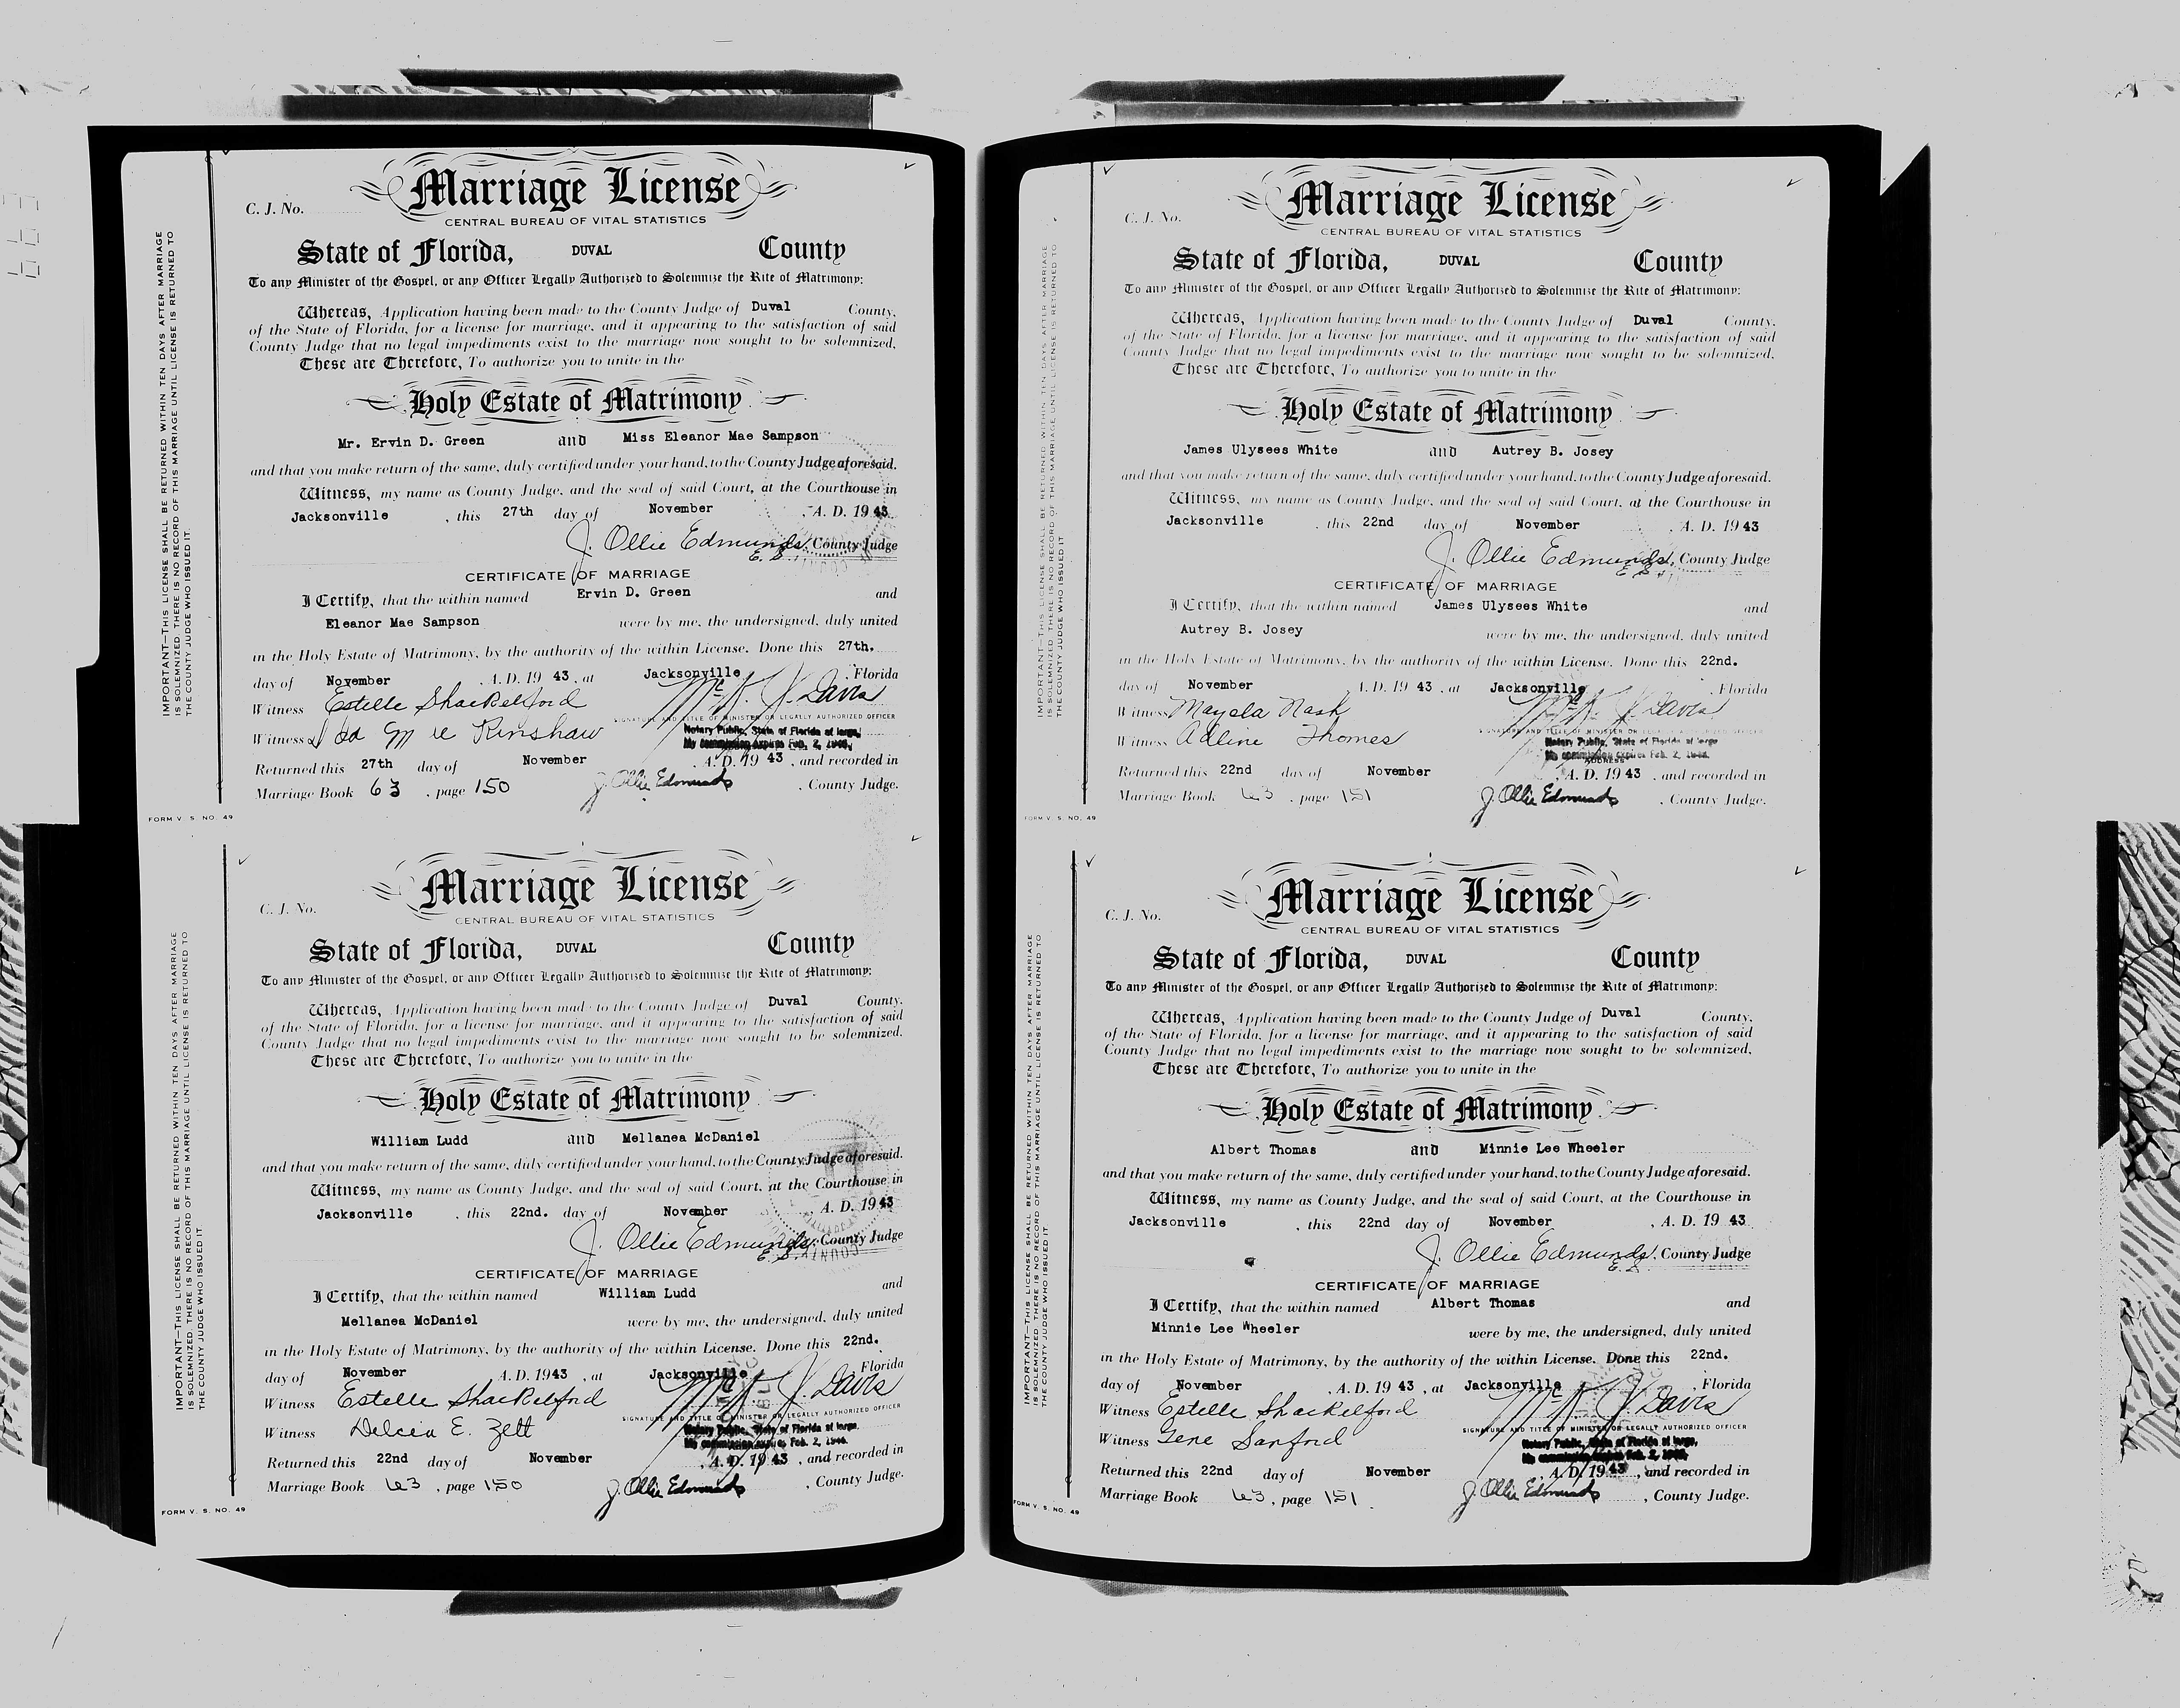 Marriage License
C. J. No.
CENTRAL BUREAU OF VITAL STATISTICS
State of Florida, DUVAL County
To any Minister of the Gospel, or any Officer Legally Authorized to Solemnize the Rite of Matrimony:
Whereas, Application having been made to the County Judge of Duval County,
of the State of Florida, for a license for marriage, and it appearing to the satisfaction of said
County Judge that no legal impediments exist to the marriage now sought to be solemnized,
These are Therefore, To authorize you to unite in the
Holy Estate of Matrimony
Mr. Ervin D. Green and Miss Eleanor Mae Sampson
and that you make return of the same, duly certified under your hand, to the County Judge aforesaid.
Witness, my name as County Judge, and the seal of said Court, at the Courthouse in
Jacksonville, this 27th day of November, A. D. 1943
J. Ollie Edmunds, County Judge
E. S.
CERTIFICATE OF MARRIAGE
I Certify, that the within named Ervin D. Green and
Eleanor Mae Sampson were by me, the undersigned, duly united
in the Holy Estate of Matrimony, by the authority of the within License. Done this 27th.
day of November, A. D. 1943, at Jacksonville, Florida
Witness Estelle Shackelford Davis
SIGNATURE AND TITLE OF MINISTER OR LEGALLY AUTHORIZED OFFICER
Witness Rinshaw
Notary Public, State of Florida at large,
My commission expires Feb. 2,
Returned this 27th day of November, A. D. 1943, and recorded in
Marriage Book 63, page 150 J. Ollie Edmunds, County Judge.
FORM V. S. NO. 49
IMPORTANT—THIS LICENSE SHALL BE RETURNED WITHIN TEN DAYS AFTER MARRIAGE
IS SOLEMNIZED. THERE IS NO RECORD OF THIS MARRIAGE UNTIL LICENSE IS RETURNED TO
THE COUNTY JUDGE WHO ISSUED IT.
Marriage License
C. J. No.
CENTRAL BUREAU OF VITAL STATISTICS
State of Florida, DUVAL County
To any Minister of the Gospel, or any Officer Legally Authorized to Solemnize the Rite of Matrimony:
Whereas, Application having been made to the County Judge of Duval County,
of the State of Florida, for a license for marriage, and it appearing to the satisfaction of said
County Judge that no legal impediments exist to the marriage now sought to be solemnized,
These are Therefore, To authorize you to unite in the
Holy Estate of Matrimony
William Ludd and Mellanea McDaniel
and that you make return of the same, duly certified under your hand, to the County Judge aforesaid.
Witness, my name as County Judge, and the seal of said Court, at the Courthouse in
Jacksonville, this 22nd. day of November, A. D. 1943
J. Ollie Edmunds, County Judge
E. S.
CERTIFICATE OF MARRIAGE
I Certify, that the within named William Ludd and
Mellanea McDaniel were by me, the undersigned, duly united
in the Holy Estate of Matrimony, by the authority of the within License. Done this 22nd.
day of November A. D. 1943, at Jacksonville, Florida
Witness Estelle Shackelford Davis
SIGNATURE AND TITLE OF MINISTER OR LEGALLY AUTHORIZED OFFICER
Witness Delcia E. Zett
Notary Public, State of Florida at large,
My commission expires Feb. 2,
Returned this 22nd day of November, A. D. 1943, and recorded in
Marriage Book 63, page 150 J. Ollie Edmunds, County Judge.
FORM V. S. NO. 49
IMPORTANT—THIS LICENSE SHALL BE RETURNED WITHIN TEN DAYS AFTER MARRIAGE
IS SOLEMNIZED. THERE IS NO RECORD OF THIS MARRIAGE UNTIL LICENSE IS RETURNED TO
THE COUNTY JUDGE WHO ISSUED IT.
Marriage License
C. J. No.
CENTRAL BUREAU OF VITAL STATISTICS
State of Florida, DUVAL County
To any Minister of the Gospel, or any Officer Legally Authorized to Solemnize the Rite of Matrimony:
Whereas, Application having been made to the County Judge of Duval County,
of the State of Florida, for a license for marriage, and it appearing to the satisfaction of said
County Judge that no legal impediments exist to the marriage now sought to be solemnized,
These are Therefore, To authorize you to unite in the
Holy Estate of Matrimony
James Ulysees White and Autrey B. Josey
and that you make return of the same, duly certified under your hand, to the County Judge aforesaid.
Witness, my name as County Judge, and the seal of said Court, at the Courthouse in
Jacksonville, this 22nd day of November, A. D. 1943
J. Ollie Edmunds, County Judge
CERTIFICATE OF MARRIAGE
I Certify, that the within named James Ulysees White and
Autrey B. Josey were by me, the undersigned, duly united
in the Holy Estate of Matrimony, by the authority of the within License. Done this 22nd.
day of November, A. D. 1943, at Jacksonville, Florida
Witness Mayola Nash Davis
SIGNATURE AND TITLE OF MINISTER OR LEGALLY AUTHORIZED OFFICER
Witness Adline Thomes
Notary Public, State of Florida at large
My commission expires Feb. 2,
ADDRESS
Returned this 22nd day of November, A. D. 1943, and recorded in
Marriage Book 63, page 151 J. Ollie Edmunds, County Judge.
FORM V. S. NO. 49
IMPORTANT—THIS LICENSE SHALL BE RETURNED WITHIN TEN DAYS AFTER MARRIAGE
IS SOLEMNIZED. THERE IS NO RECORD OF THIS MARRIAGE UNTIL LICENSE IS RETURNED TO
THE COUNTY JUDGE WHO ISSUED IT
Marriage License
C. J. No.
CENTRAL BUREAU OF VITAL STATISTICS
State of Florida, DUVAL County
To any Minister of the Gospel, or any Officer Legally Authorized to Solemnize the Rite of Matrimony:
Whereas, Application having been made to the County Judge of Duval County,
of the State of Florida, for a license for marriage, and it appearing to the satisfaction of said
County Judge that no legal impediments exist to the marriage now sought to be solemnized,
These are Therefore, To authorize you to unite in the
Holy Estate of Matrimony
Albert Thomas and Minnie Lee Wheeler
and that you make return of the same, duly certified under your hand, to the County Judge aforesaid.
Witness, my name as County Judge, and the seal of said Court, at the Courthouse in
Jacksonville, this 22nd day of November, A. D. 19 43
J. Ollie Edmunds, County Judge
E. S.
CERTIFICATE OF MARRIAGE
I Certify, that the within named Albert Thomas and
Minnie Lee Wheeler were by me, the undersigned, duly united
in the Holy Estate of Matrimony, by the authority of the within License. Done this 22nd.
day of November, A. D. 19 43, at Jacksonville, Florida
Witness Estelle Shackelford Davis
SIGNATURE AND TITLE OF MINISTER OR LEGALLY AUTHORIZED OFFICER
Witness Gene Sanford
Notary Public, State of Florida at large,
My commission expires Feb. 2,
Returned this 22nd day of November, A. D. 1943, and recorded in
Marriage Book 63, page 151. J. Ollie Edmunds, County Judge.
FORM V. S. NO. 49
IMPORTANT—THIS LICENSE SHALL BE RETURNED WITHIN TEN DAYS AFTER MARRIAGE
IS SOLEMNIZED. THERE IS NO RECORD OF THIS MARRIAGE UNTIL LICENSE IS RETURNED TO
THE COUNTY JUDGE WHO ISSUED IT